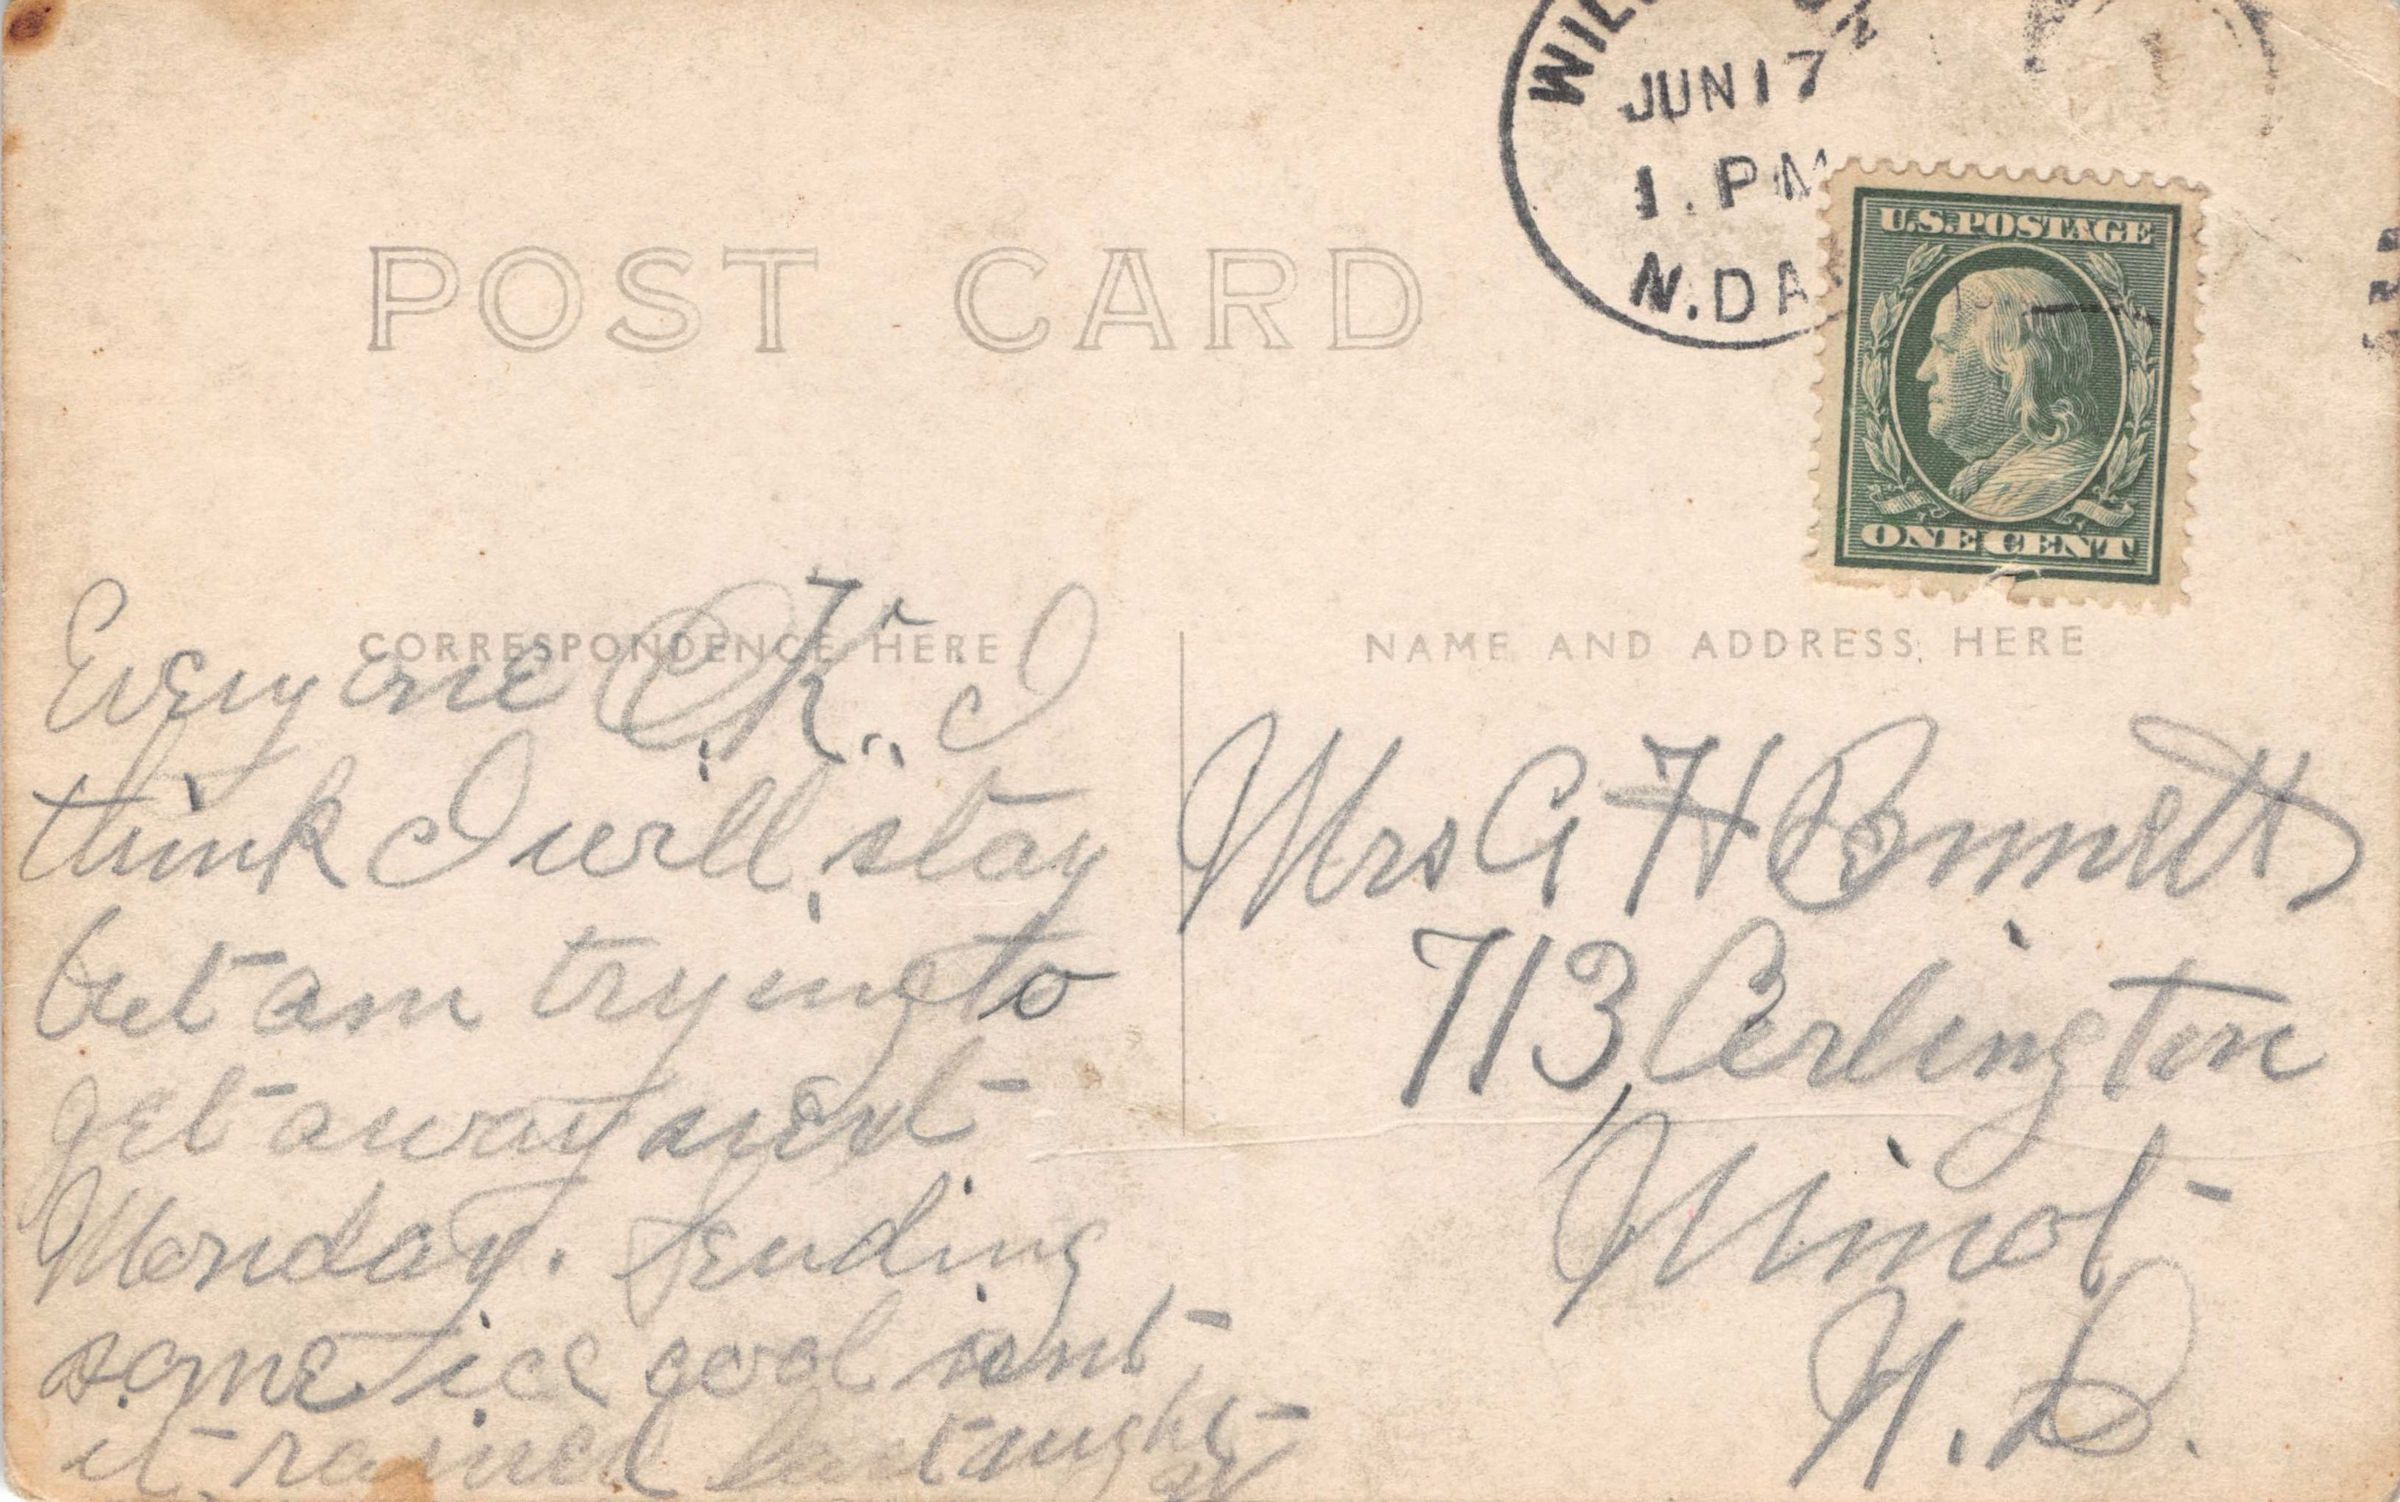 JUN 17
1. PM
N. DA
U.S. POSTAGE
ONE CENT
POST CARD
CORRESPONDENCE HERE
NAME AND ADDRESS HERE
Everyone O.K. I
think I will stay
but am trying to
get away next
Monday. Sending
some ice cool isnt
it rained last night
Mrs G H Bennett
713 Arlington
Minot
N. D.